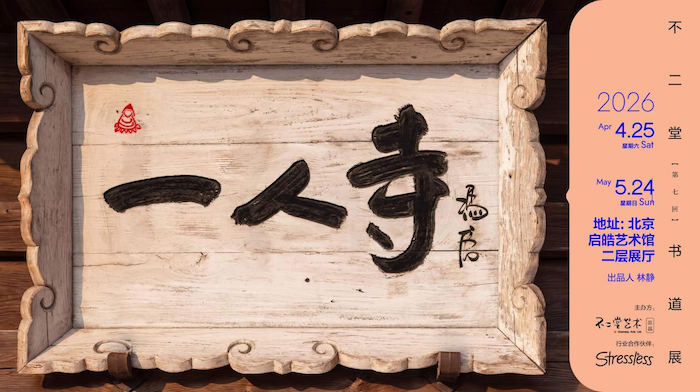 一人寺
不二堂【第七回】书道展
2026
Apr 4.25
星期六 Sat
May 5.24
星期日 Sun
地址: 北京
启皓艺术馆
二层展厅
出品人 林静
主办方:
不二堂艺术
行业合作伙伴:
Stressless